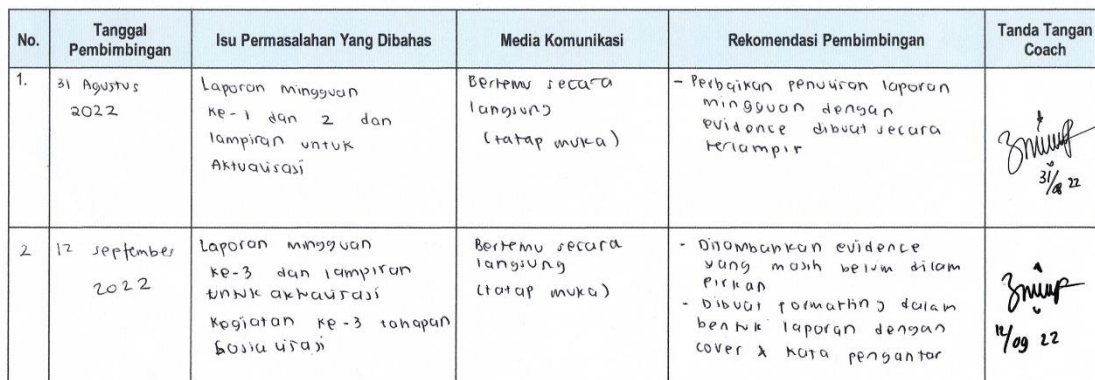 No.
Tanggal
Pembimbingan
Isu Permasalahan Yang Dibahas
Media Komunikasi
Rekomendasi Pembimbingan
Tanda Tangan
Coach
1.
31 Agustus
2022
Laporan mingguan
ke-1 dan 2 dan
lampiran untuk
Aktualisasi
Bertemu secara
langsung
(tatap muka)
- Perbaikan penulisan laporan
mingguan dengan
evidence dibuat secara
terlampir
31/08 22
2
12 september
2022
Laporan mingguan
ke-3 dan lampiran
untuk aktualisasi
kegiatan ke-3 tahapan
Sosialisasi
Bertemu secara
langsung
(tatap muka)
- Ditambahkan evidence
yang masih belum dilam
pirkan
- Dibuat formatting dalam
bentuk laporan dengan
cover & kata pengantar
12/09 22